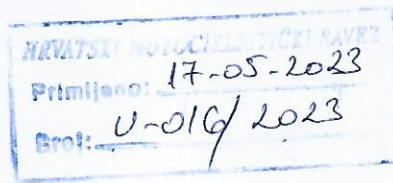 HRVATSKI MOTOCIKLISTIČKI SAVEZ
Primljeno: 17-05-2023
Broj: U-016/2023